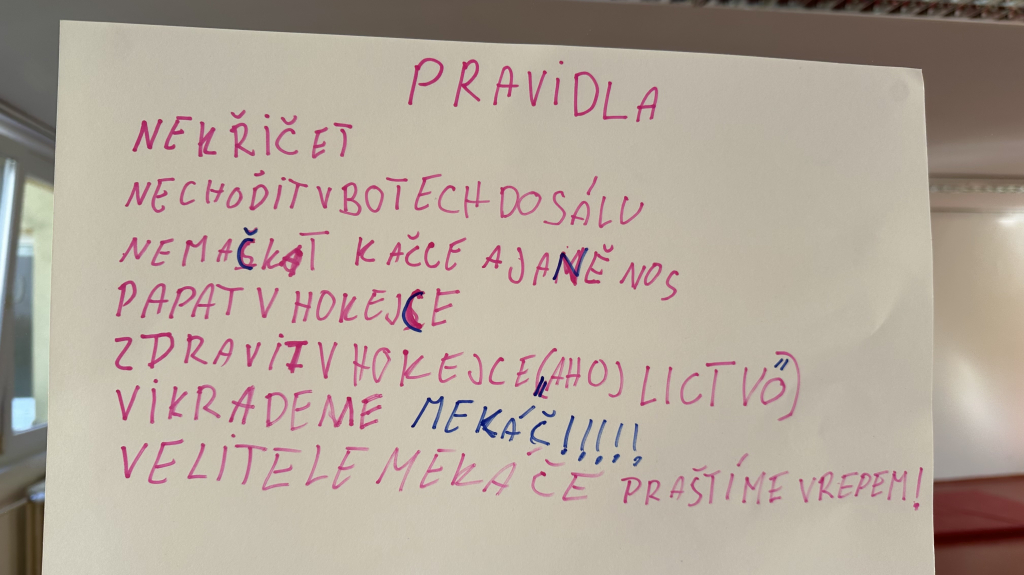 PRAViDLA
NEKŘiČET
NECHOĎIT V BOTECH DO SÁLU
NEMAČKAT KAČCE A JANĚ NOS
PAPAT V HOKEJCE
ZDRAViT V HOKEJCE („AHOJ LICTVO")
ViKRADEME MEKÁČ!!!!!
VELiTELE MEKÁČE PRAŠTÍME VREPEM!